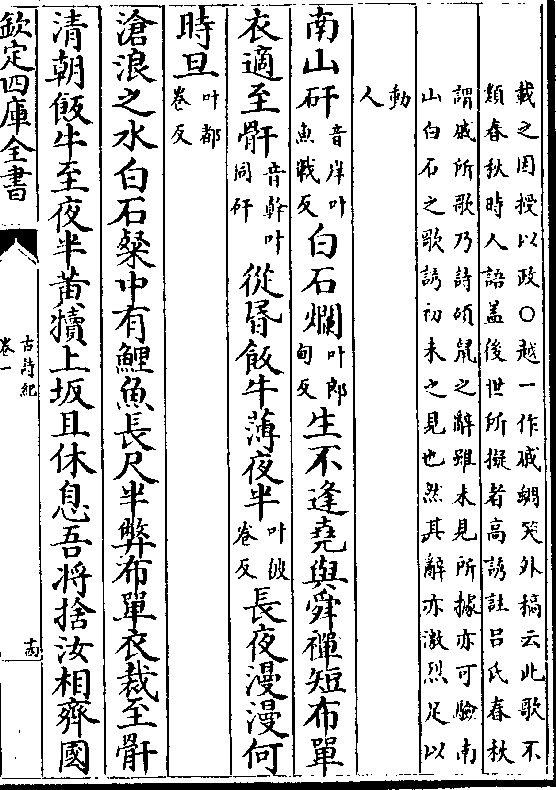 載之因授以政○越一作戚綱癸外稿云此歌不
類春秋時人語蓋後世所擬者高誘註呂氏春秋
謂戚所歌乃詩碩鼠之辭雖未見所據亦可驗南
山白石之歌誘初未之見也然其辭亦激烈足以
動
人
南山矸音岸叶魚戰反白石爛叶郎甸反生不逢堯與舜禪短布單
衣適至骭音幹叶同矸從昏飯牛薄夜半叶彼眷反長夜漫漫何
時旦叶都眷反
滄浪之水白石粲中有鯉魚長尺半弊布單衣裁至骭
清朝飯牛至夜半黃犢上坂且休息吾將捨汝相齊國
欽定四庫全書
古詩紀
卷一